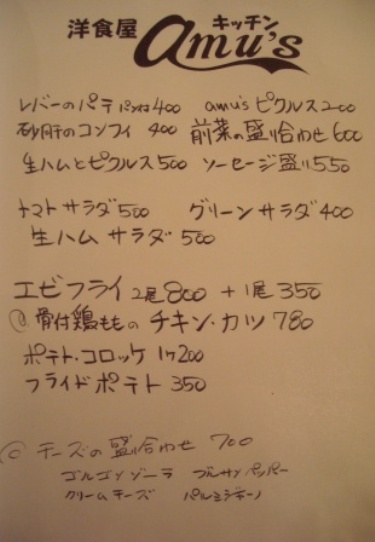 洋食屋 キッチン
amu's
レバーのパテ パン付 400 amu's ピクルス 200
砂肝のコンフィ 400 前菜の盛り合わせ 600
生ハムとピクルス 500 ソーセージ盛り 550
トマトサラダ 500 グリーンサラダ 400
生ハムサラダ 500
エビフライ 2尾 800 +1尾 350
骨付鶏ももの チキン・カツ 780
ポテト・コロッケ 1ケ 200
フライドポテト 350
○ チーズの盛り合わせ 700
ゴルゴンゾーラ ブルサンペッパー
クリームチーズ パルミジャーノ